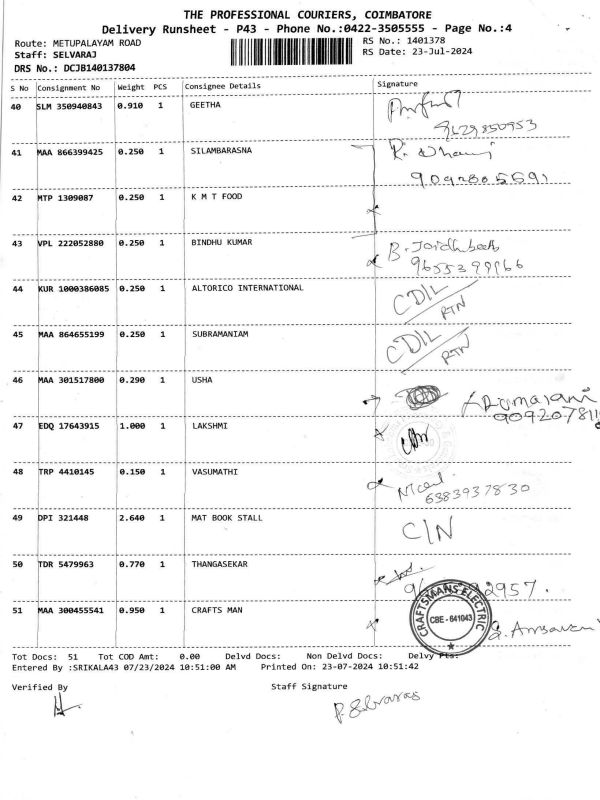 THE PROFESSIONAL COURIERS, COIMBATORE
Delivery Runsheet - P43 - Phone No.:0422-3505555 - Page No.:4
Route: METUPALAYAM ROAD RS No.: 1401378
Staff: SELVARAJ RS Date: 23-Jul-2024
DRS No.: DCJB140137804
S No Consignment No Weight PCS Consignee Details Signature
40 SLM 350940843 0.910 1 GEETHA
9629850953
41 MAA 866399425 0.250 1 SILAMBARASNA
9092805591
42 MTP 1309087 0.250 1 K M T FOOD
43 VPL 222052880 0.250 1 BINDHU KUMAR
44 KUR 1000386085 0.250 1 ALTORICO INTERNATIONAL CDIL
RTN
45 MAA 864655199 0.250 1 SUBRAMANIAM CDIL
RTN
46 MAA 301517800 0.290 1 USHA
47 EDQ 17643915 1.000 1 LAKSHMI
48 TRP 4410145 0.150 1 VASUMATHI
6383937830
49 DPI 321448 2.640 1 MAT BOOK STALL C/N
50 TDR 5479963 0.770 1 THANGASEKAR
51 MAA 300455541 0.950 1 CRAFTS MAN
CRAFTSMANS ELECTRIC
CBE - 641043
Tot Docs: 51 Tot COD Amt: 0.00 Delvd Docs: Non Delvd Docs: Delvy Pts:
Entered By :SRIKALA43 07/23/2024 10:51:00 AM Printed On: 23-07-2024 10:51:42
Verified By Staff Signature